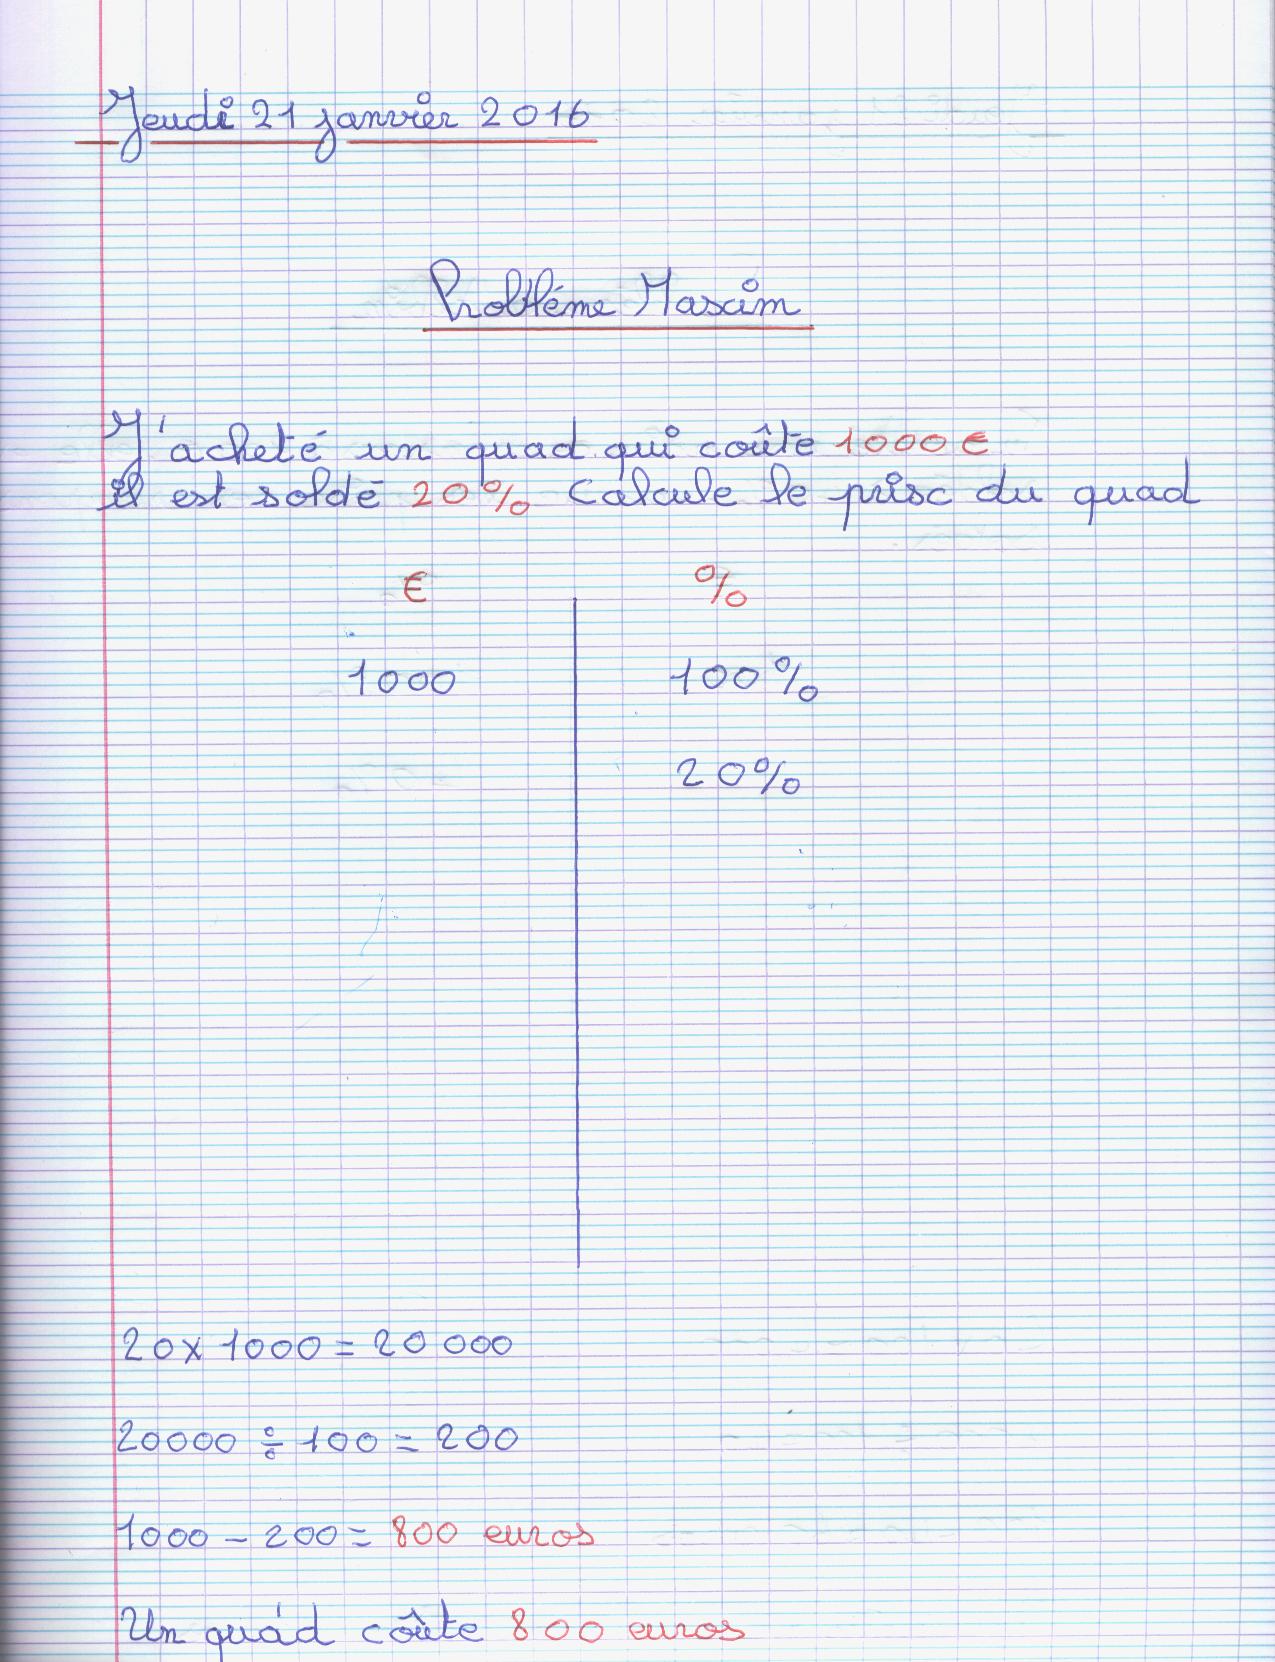 Jeudi 21 janvier 2016
Probléme Maxim
J'acheté un quad qui coûte 1000 €
il est soldé 20% Calcule le prix du quad
€ %
1000 100%
20%
20 x 1000 = 20 000
20000 ÷ 100 = 200
1000 - 200 = 800 euros
Un quad coûte 800 euros